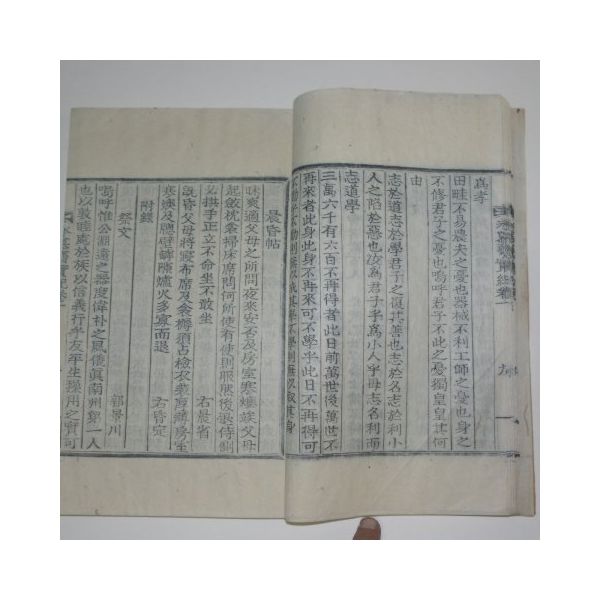 爲孝
田畦不易農夫之憂也器械不利工師之憂也身之
不修君子之憂也嗚呼君子不此之憂獨皇皇其何
由
志於學君子之復其善也志於名志於利小
人之陷於惡也汝爲君子乎爲小人乎毋志名利而
志道學
三萬六千有六百不再得者此日前萬世後萬世不
再來者此身此身不再來可不學乎此日不再得可
晨昏帖
昧爽適父母之所問夜來安否及房室寒煖竢父母
起斂枕衾掃床席問何所使有使則服應後最侍側
拱手正立不命坐不敢坐
右晨省
旣昏父母將寢布席及衾褥須占檢衣裳厚薄房堗
寒煖及牕壁罅隙爐火多寡而退
右昏定
附錄
祭文
郭景川
嗚呼惟公淵遠之器度偉朴之風儀眞南州第一人
也以敦睦處於族以信義行乎友平生操用之實可